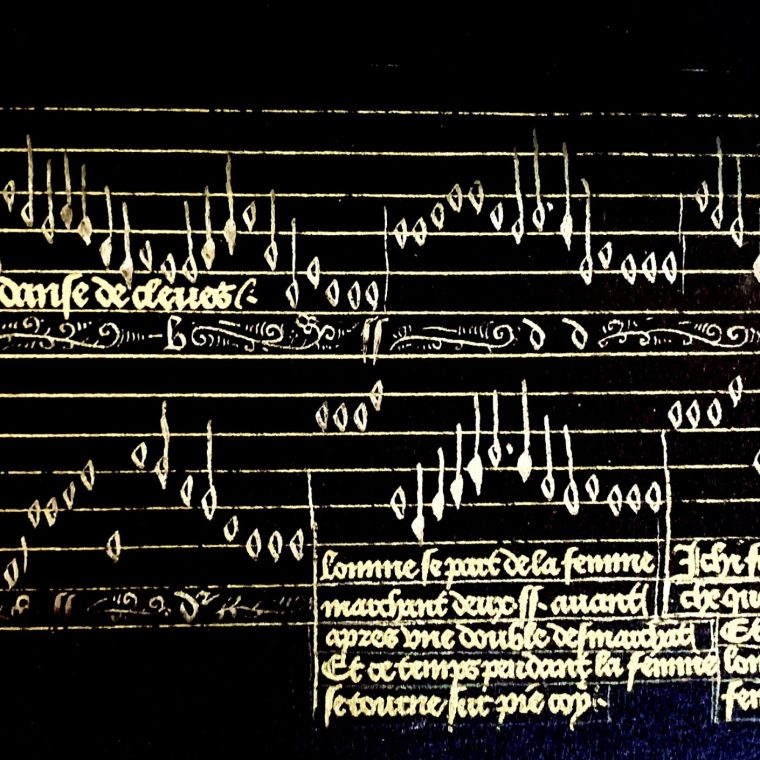 danse de cleues
b ss d d
ss dr
Lomme se part de la femme
marchant deux .ss. auant
apres vne double desmarchat
Et ce temps pendant la femme
se tourne sur pie coy
Ichi
che
Et
lom
fem